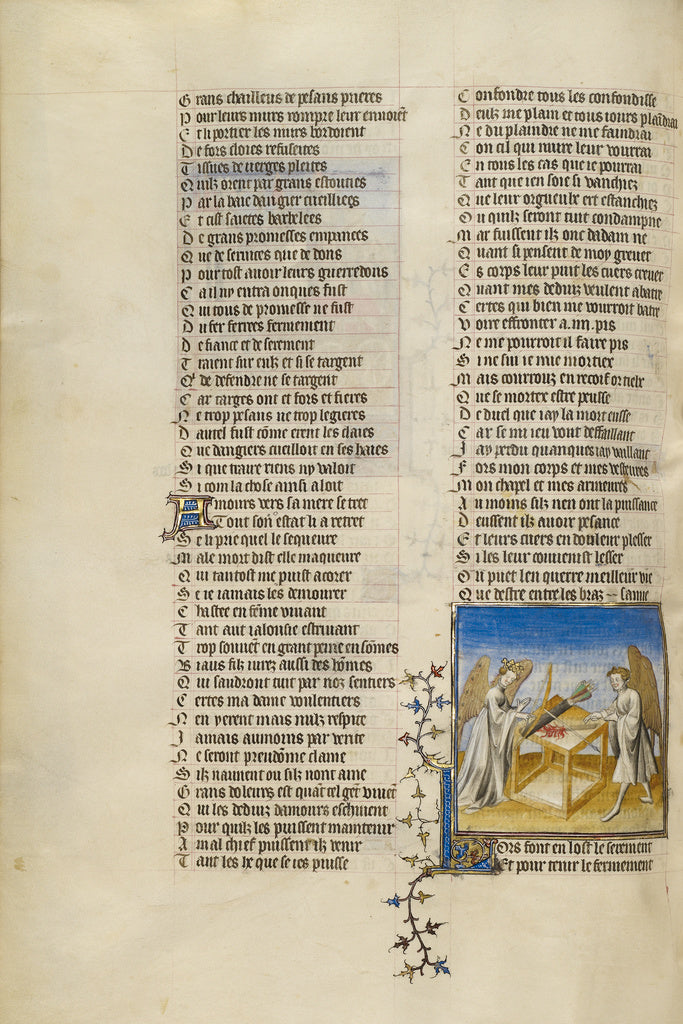 Grans chailleus de pesans prieres
Pour leurs murs rompre leur enuoiẽt
Et li portier les murs bordoient
De fors cloies refuseices
Tissues de uerges pleices
Quilz orent par grans estouties
Par la haie dangier cueillies
Et cist saietes barbelees
De grans promesses empanees
Que de seruices que de dons
Pour tost auoir leurs guerredons
Car il ny entra onques fust
Qui tous de promesse ne fust
Du fer ferrees fermement
De fiance et de serement
Traient sur eulz et si se targent
Que de defendre ne se targent
Car targes ont et fors et fieres
Ne trop pesans ne trop legieres
Dautel fust cõme erent les claies
Que dangiers cueilloit en ses haies
Si que traire riens ny valoit
Si com la chose ainsi aloit
Amours vers sa mere se tret
Tout son estat li a retret
Se li prie quel le sequeure
Male mort dist elle maqueure
Qui tantost me puist acorer
Se ie iamais les demourer
Chastee en fẽme viuant
Tant aut ialousie estriuant
Trop souuẽt en grant peine en sõmes
Biaus filz iurez aussi des hõmes
Qui saudront tuit par noz sentiers
Certes ma dame voulentiers
Nen yerent mais nulz respite
Iamais au moins par verite
Ne seront preudõme clame
Silz naiment ou silz nont ame
Grans doleurs est quãt tel gẽt viuẽt
Qui les deduiz damours eschiuent
Pour quilz les puissent maintenir
A mal chief puissent ilz venir
Tant les he que se ies puisse
Confondre tous les confondisse
Deulz me plain et tous iours plaĩdrai
Ne du plaindre ne me faindrai
Con cil qui nuire leur vourrai
En tous les cas que ie pourrai
Tant que ien soie si vanchiez
Que leur orgueulz ert estanchiez
Ou quilz seront tuit condampne
Mar fuissent ilz onc dadam ne
Quant si pensent de moy greuer
Es corps leur puit les cuers creuer
Quant mes deduiz veulent abatre
Certes qui bien me vourroit batre
Voire effronter a .iiii. pis
Ne me pourroit il faire pis
Si ne sui ie mie mortiex
Mais courrouz en recoif or tiels
Que se mortex estre peusse
De duel que iay la mort eusse
Car se mi ieu vont deffaillant
Iay perdu quanques iay vaillant
Fors mon corps et mes vesteures
Mon chapel et mes armeures
Au moins silz nen ont la puissance
Deussent ilz auoir pesance
Et leurs cuers en douleur plesser
Si les leur conuenist lesser
Ou puet len querre meilleur vie
Que destre entre les braz samie
Lors font en lost le serement
Et pour tenir le fermement